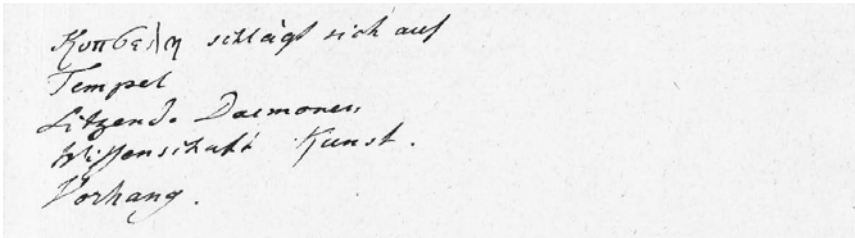 Κυπσελη schlägt sich auf
Tempel
Sitzende Daemonen
Wissenschaft Kunst.
Vorhang.